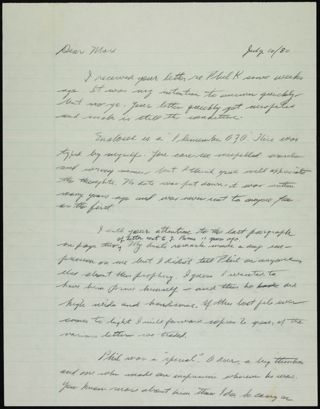 Dear Max July 10/80
I received your letter re Phil K some weeks
ago. It was my intention to answer quickly-
but no go. Your letter quickly got misfiled
and such is still the condition.
Enclosed is a "I Remember This was
typed by myself. You can see misspelled words
and wrong names, but I think you will appreciate
the thoughts. No date was put down; it was written
many years ago and was never sent to anyone,
the first.
I call your attention to the last paragraph
of letter sent to J. 11 years ago.
on page My remark made a deep im-
pression on me but I didn't tell Phil or anyone
else about this prophecy. I guess I wanted to
have him prove himself - and then he
high wide and handsome. If this lost file ever
comes to light I will forward copies to you, of the
various letters we traded.
Phil was a "special". A doer, a big thinker
and one who made an impression wherever he was.
You know more about him than I do. So carry on